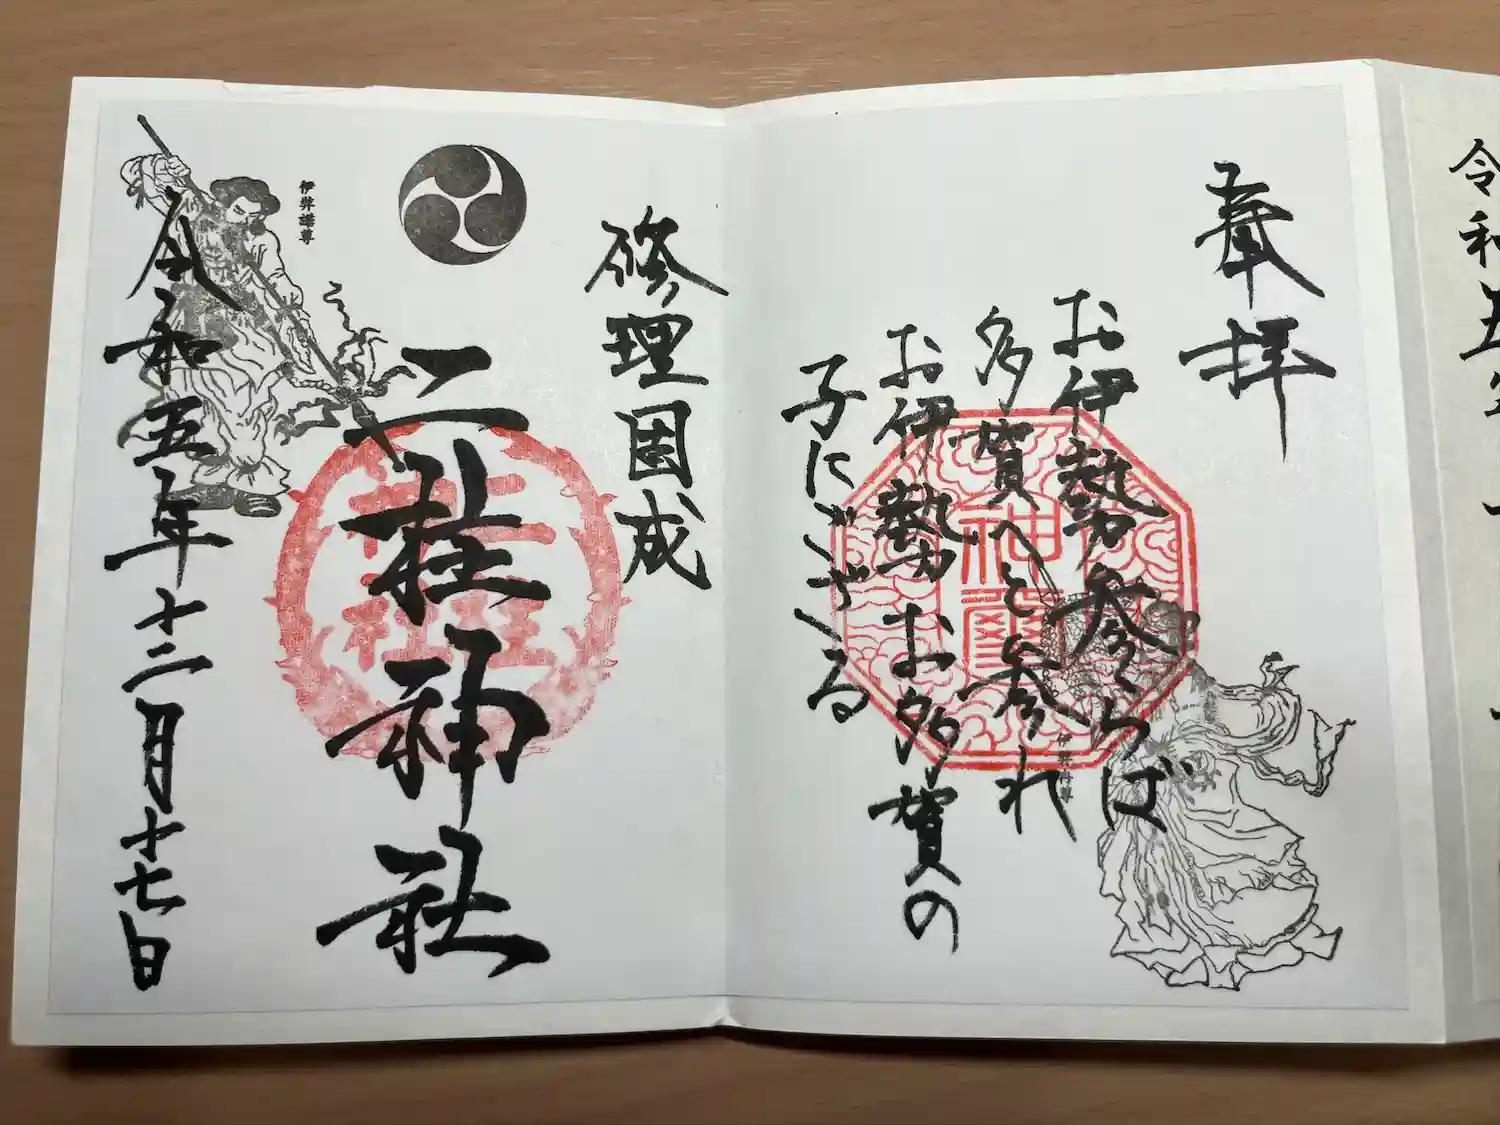 令和五年
奉拝
お伊勢参らば
多賀へと参れ
お伊勢お多賀の
子にござる
伊弉冉尊
修理固成
二柱神社
二柱神社
伊弉諾尊
令和五年十二月十七日